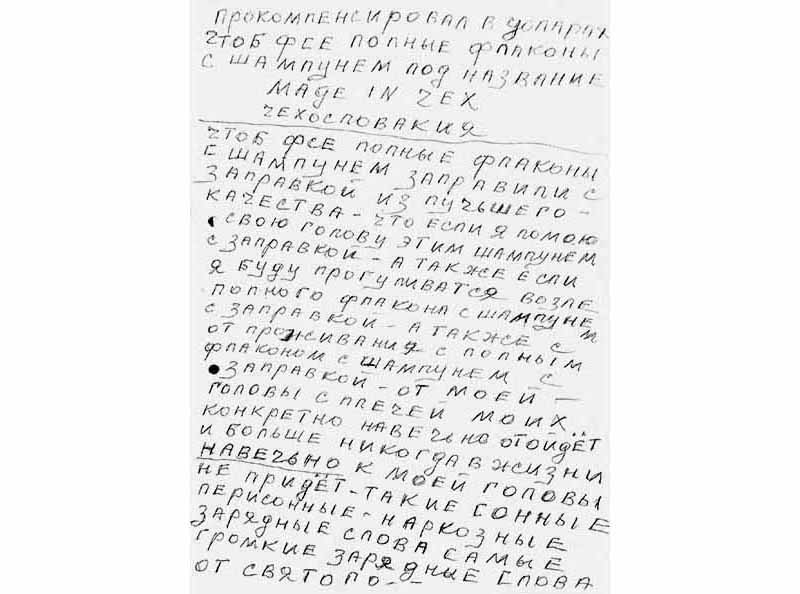 ПРОКОМПЕНСИРОВАЛ В ДОЛАРАХ
ЧТОБ ФСЕ ПОЛНЫЕ ФЛАКОНЫ
С ШАМПУНЕМ ПОД НАЗВАНИЕ
MADE IN ЧЕХ
ЧЕХОСЛОВАКИЯ
ЧТОБ ФСЕ ПОЛНЫЕ ФЛАКОНЫ
С ШАМПУНЕМ ЗАПРАВИЛИ С
ЗАПРАВКОЙ ИЗ ЛУЧЬШЕГО -
КАЧЕСТВА - ЧТО ЕСЛИ Я ПОМОЮ
СВОЮ ГОЛОВУ ЭТИМ ШАМПУНЕМ
С ЗАПРАВКОЙ - А ТАКЖЕ ЕСЛИ
Я БУДУ ПРОГУЛИВАТСЯ ВОЗЛЕ
ПОЛНОГО ФЛАКОНА С ШАМПУНЕМ
С ЗАПРАВКОЙ - А ТАКЖЕ С
ОТ ПРОЖИВАНИЯ С ПОЛНЫМ
ФЛАКОНОМ С ШАМПУНЕМ С
ЗАПРАВКОЙ - ОТ МОЕЙ -
ГОЛОВЫ С ПЛЕЧЕЙ МОИХ
КОНКРЕТНО НАВЕЧЬНО ОТОЙДЁТ
И БОЛЬШЕ НИКОГДА В ЖИЗНИ
НАВЕЧЬНО К МОЕЙ ГОЛОВЫ
НЕ ПРИДЁТ - ТАКИЕ ГОННЫЕ
ПЕРИСОННЫЕ - НАРКОЗНЫЕ
ЗАРЯДНЫЕ СЛОВА САМЫЕ
ГРОМКИЕ ЗАРЯДНЫЕ СЛОВА
ОТ СВЯТОГО - -